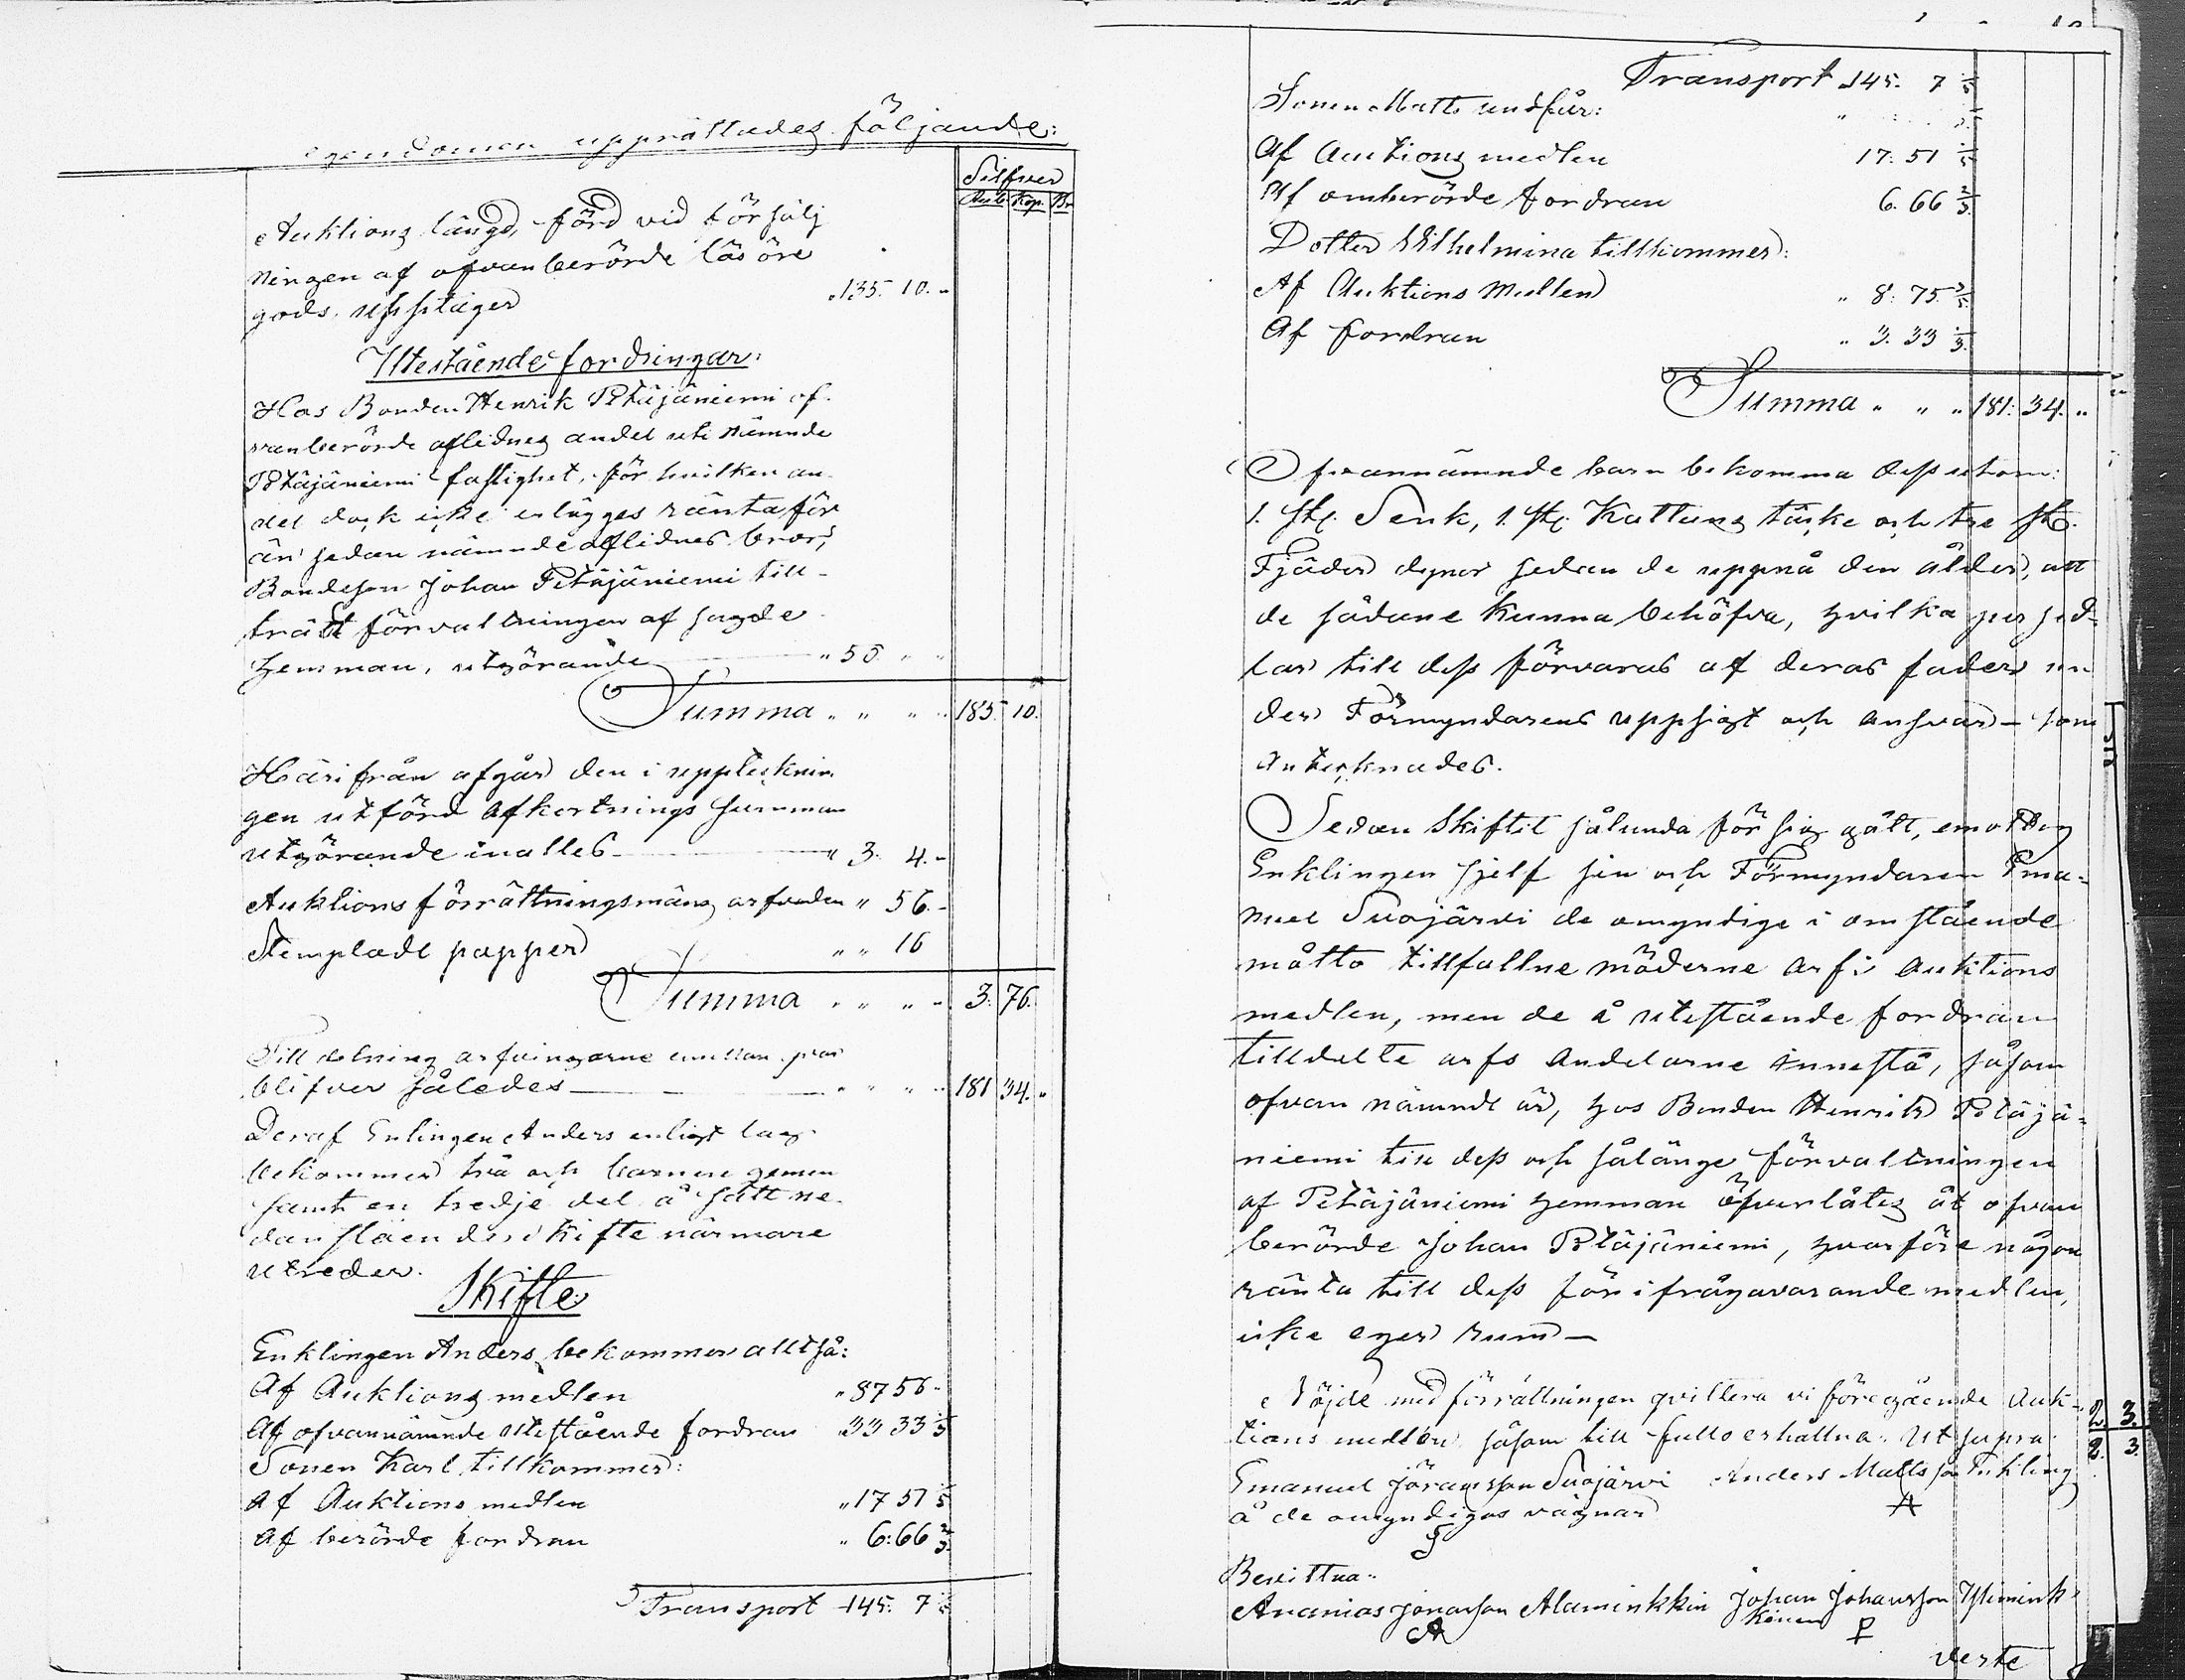 egendomen upprättades följande:
Silfver
Rub. Kop. Br
Auktions längd, förd vid försälj
ningen af ofvanberörde lösöre
gods, upptager "135. 10. -
Utestående fordringar:
Hos Bonden Henrik Petäjäniemi of-
vanberörde aflidnes andel uti nämnde
Petäjäniemi fastighet, för hvilken an-
del dock icke erlägges ränta för
än sedan nämnde aflidnes bror,
Bondeson Johan Petäjäniemi till-
trädt förvaltningen af sagde
hemman, utgörande " 50 " "
Summa " " " " 185. 10.
Härifrån afgår den i upptecknin
gen utförd afkortnings summan
utgörande inalles " 3. 4. -
Auktions förrättningsmäns arfvoden " 56. -
Stemplade papper " " 16
Summa " " " " 3. 76.
Till delning arfvingarne emellan
blifver således " " " " 181 34. "
Deraf Enlingen Anders enligt lag
bekommer två och barnen gemen
samt en tredje del å sätt ne-
danstående skifte närmare
utreder.
Skifte
Enklingen Anders bekommer alltså:
Af Auktions medlen " 87 56 -
Af ofvannämnde utestående fordran " 33 33 1/3
Sonen Karl tillkommer:
Af Auktions medlen " 17 51 1/5
Af berörde fordran " 6: 66 2/3
Transport 145. 7 1/5
Transport 145. 7 1/5
Sonen Matts undfår:
Af Auctions medlen 17: 51 1/5
Af omberörde fordran 6. 66 2/3
Dotter Wilhelmina tillkommer:
Af Auktions medlen " 8: 75 3/5
Af fordran " 3. 33 1/3
Summa " " " 181: 34. "
Ofvannämnde barn bekomma dessutom:
1. st. Senk, 1. st. Kattuns täcke och tre st.
Fjäder dynor sedan de uppnå den ålder, att
de sådane kunna behöfva, hvilka per sed-
lar till dess förvaras af deras fader un
der Förmyndarens uppsigt och ansvar - som
antecknades.
Sedan Skiftet sålunda för sig gått, emottog
Enklingen sjelf sin och Förmyndaren Ema-
nuel Suojärvi de omyndige i omstående
måtto tillfallne möderne arf i auktions
medlen, men de å utestående fordran
tilldelte arfs andelarne innestå, såsom
ofvan nämndt är, hos Bonden Henrik Petäjä-
niemi till dess och sålänge förvaltningen
af Petäjäniemi hemman öfverlåtes åt ofvan
berörde Johan Petäjäniemi, hvarföre någon
ränta till dess för ifrågavarande medlen,
icke eger rum -
Nöjde med förrättningen qvittera vi föregående Auk-
tions medlen såsom till fullo erhållna. Ut supra
Emanuel Göransson Suojärvi Anders Matts son Enkling
å de omyndigas vägnar
A
Bevittna:
Ananias Jonasson Alaminkkin Johan Johansson Ylimink
kinen
A P
2. 3.
2. 3